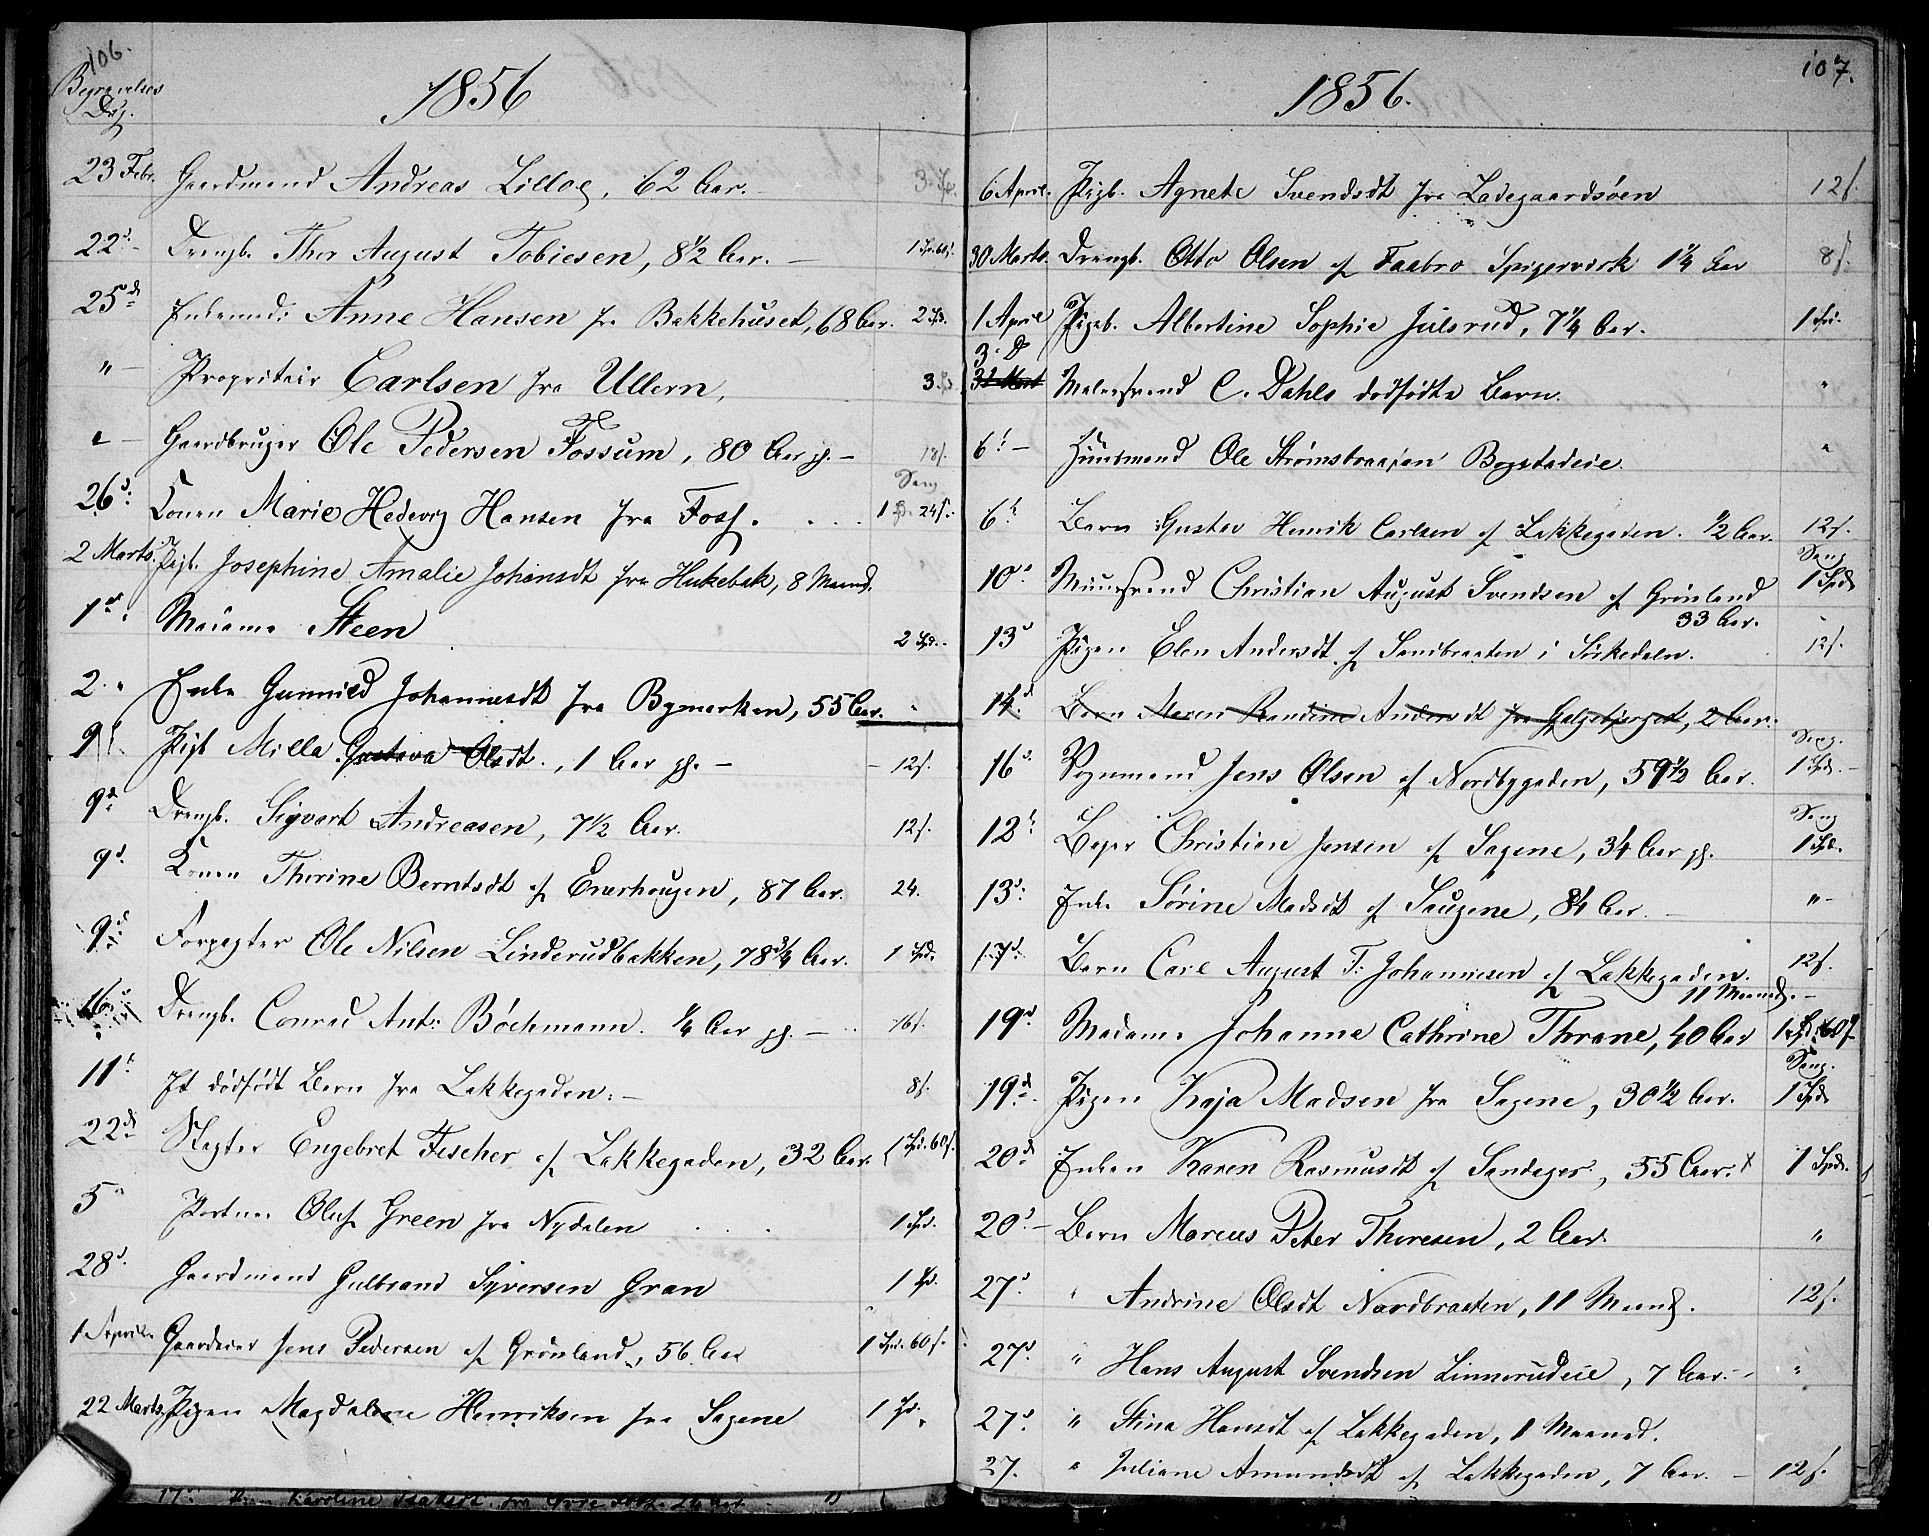 106.
Begravelses
Dag.
1856
23 Febr. Gaardmand Andreas Lilloe, 62 Aar. 3 Sp.
22d. Drengb. Thor August Tobiesen, 8 1/2 Aar. — 1 Sp. 60 s.
25d Enkemad: Anne Hansen fra Bakkehuset, 68 Aar. 2 Spd.
" — Propritair Carlsen fra Ullern, 3.
" — Gaardbruger Ole Pedersen Fossum, 80 Aar gl. — 18 s.
Sang
26d: Konen Marie Hedevig Hansen fra Foss. . . . 1 Sp. 24 s.
2 Marts. Pigb. Josephine Amalie Johansdt fra Hukebek, 8 Maand.
1d. Madame Steen 2 Spd.
2. " Enke Gunnild Johannesdt fra Bymarken, 55 Aar. "
9d. Pigb Milla Gustava Olsdt., 1 Aar gl. — 12 s.
9d Drengb. Sigvart Andreasen, 7 1/2 Aar. 12 s.
9d. Konen Thorine Berntsdt af Enerhougen, 87 Aar. 24.
9d. Forpagter Ole Nilsen Linderudbakken, 78 3/4 Aar. 1 Spd.
16d Drengb. Conrad Ant: Böchmann. 1/4 Aar gl. — 16 s.
11d. Et dödfödt Barn fra Lakkegaden. — 8 s.
22d Slagter Engebret Fischer af Lakkegaden, 32 Aar. 1 Spd. 60 s.
5 " Portner Oluf Green fra Nydalen . . . 1 Spd.
28d. Gaardmand Gulbrand Syversen Gran 1 Spd.
1 April. Gaardeier Jens Pedersen af Grönland, 56 Aar 1 Spd. 60 s.
22 Marts. Pigen Magdalene Henriksen fra Sagene 1 Sp.
107.
1856.
6 April. Pigb. Agnete Svendsdt fra Ladegaardsöen 12 s.
30 Marts. Drengb. Otto Olsen af Faabro Spigerverk 1 1/4 Aar 8 s.
1 April Pigeb. Albertine Sophie Julsrud, 7 1/4 Aar. 1 Spd.
3. D
31 Mart Malersvend C. Dahls dodfödte Barn. "
6d. — Huusmand Ole Strömsbraaten Bogstadeie. "
6d. Barn Gustav Henrik Carlsen af Lakkegaden. 1/2 Aar. 12 s.
Sang
10d Muursvend Christian August Svendsen af Grönland 1 Spd
33 Aar.
13d Pigen Elen Andersdt af Sandbraaten i Sörkedalen. 12 s.
14d. Barn Maren Randine Andersdt fra Galgebjerget, 2 Aar.
Sang.
16d. Vognmand Jens Olsen af Nordbygaden, 59 1/2 Aar. 1 Spd. —
Sang
12d. Bager Christian Jensen af Sagene, 34 Aar gl. 1 Spd.
13d: Enke Sörine Madsdt af Saugene, 84 Aar. — " —
17d. Barn Carl August T. Johannesen af Lakkegaden. 12 s.
11 Maaned. —
19d. Madame Johanne Cathrine Thrane, 40 Aar 1 Sp. 60 s.
Sang.
19d. Pigen Kaja Madsen fra Sagene, 30 1/2 Aar. 1 Spd.
20d Enken Karen Rasmusdt af Sandager, 55 Aar. x 1 Spd.
20d. — Barn Marcus Peter Thoresen, 2 Aar. "
27d. " Andrine Olsdt Nordbraaten, 11 Maand. 12 s.
27d. " Hans August Svendsen Linnerudeie, 7 Aar. — "
27d. " Stina Hansdt af Lakkegaden, 1 Maaned.
27. " Juliane Amundsdt af Lakkegaden, 7 Aar. — 12 s.